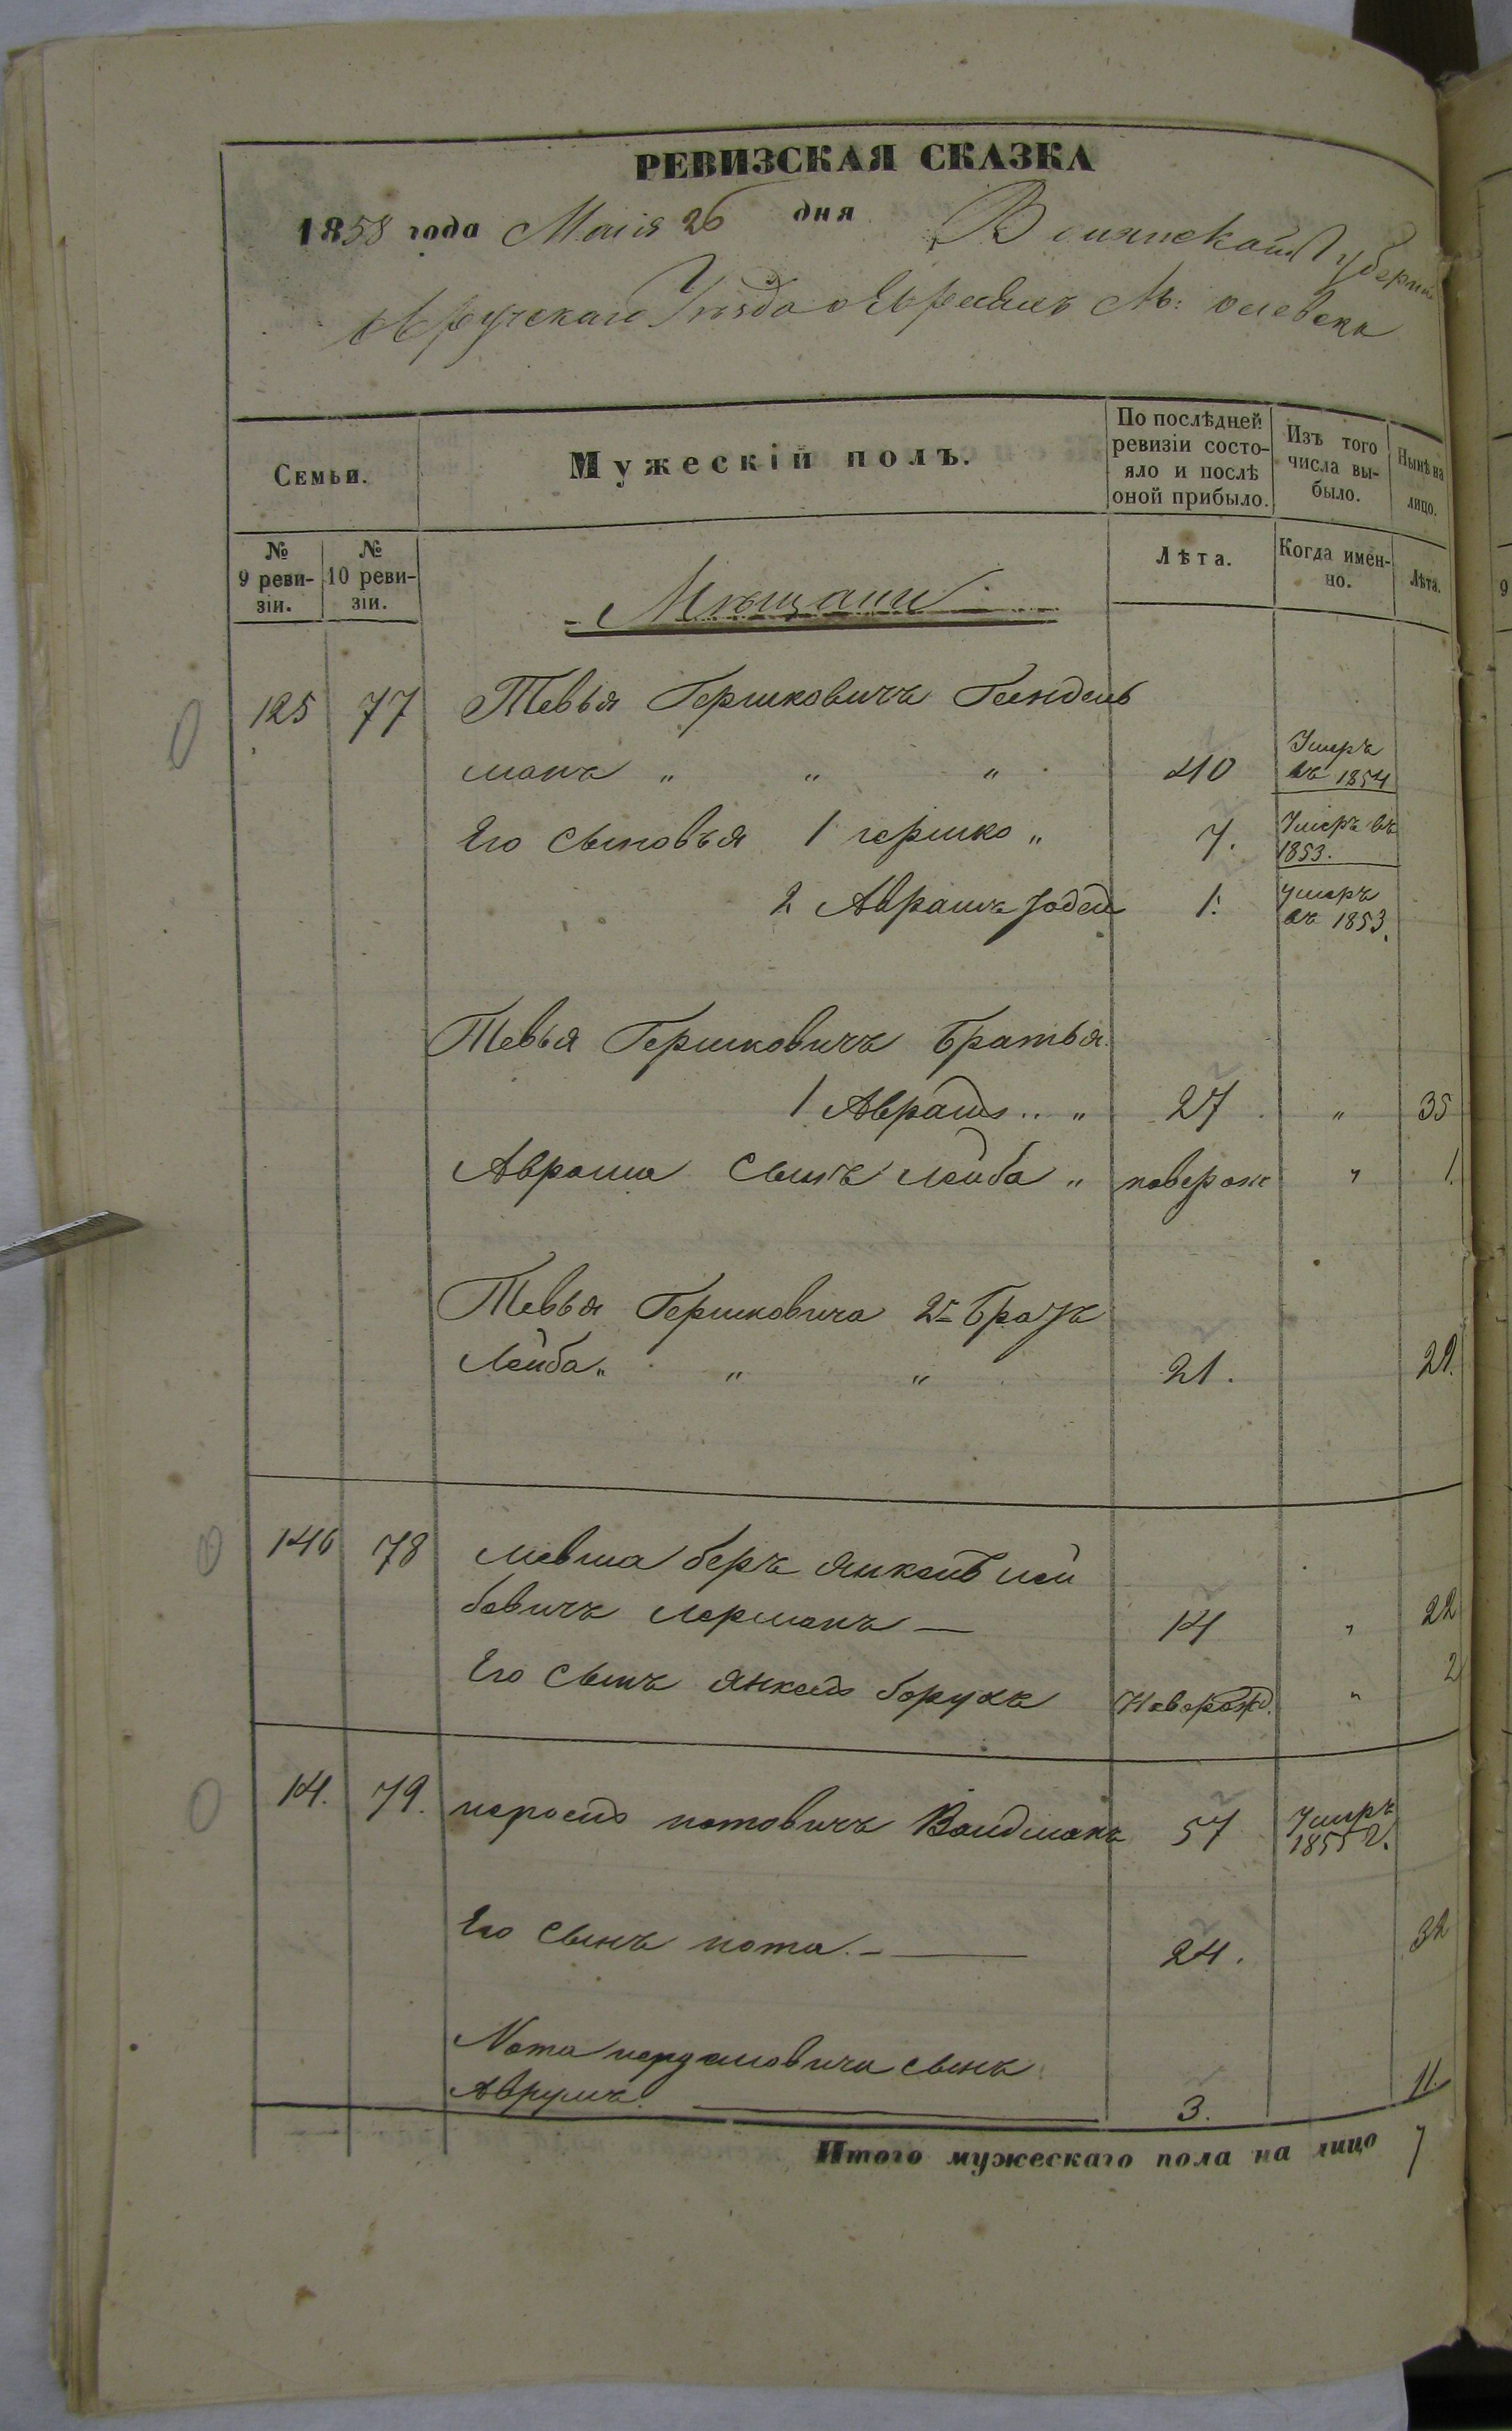 РЕВИЗСКАЯ СКАЗКА
1858 года Маія 26 дня Волынской Губерніи
Овручскаго Уѣзда о Евреяхъ М: олевска
Семьи.
Мужескій полъ.
По послѣдней ревизіи состояло и послѣ оной прибыло.
Изъ того числа выбыло.
Нынѣ на лицо.
№ 9 ревизіи.
№ 10 ревизіи.
Лѣта.
Когда именно.
Лѣта.
Мѣщане
125 77 Тевья Гершковичъ Гендель
манъ " " " 40 Умеръ въ 1854
Его Сыновья 1 гершко " 7. Умеръ въ 1853.
2 Аврамъ 1. умеръ въ 1853.
Тевья Гершковичъ братья
1 Аврамъ .. " 27 " 35
Аврама Сынъ лейба " новорож " 1.
Тевья Гершковича 2й братъ
Лейба " " " 21. 29.
146 78 мевша беръ Янкель лей
бовичъ лерманъ — 14 " 22
Его Сынъ янкель борухъ Новорожд. " 2
14. 79. нотовичъ Вайдманъ 57 Умеръ 1855 г.
Его Сынъ нота. — 24. 32
Нота сынъ
Аврумъ. 3. 11.
Итого мужескаго пола на лицо 7